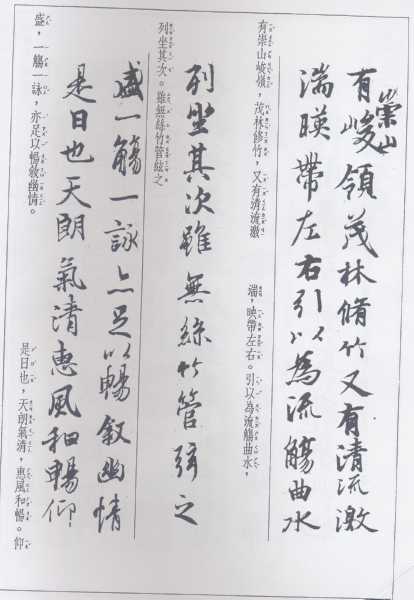 有崇山峻領茂林脩竹又有清流激
湍暎帶左右引以為流觴曲水
有崇山峻嶺，茂林修竹，又有清流激
湍，映帶左右。引以為流觴曲水，
列坐其次雖無絲竹管弦之
列坐其次。雖無絲竹管絃之
盛一觴一詠亦足以暢敘幽情
是日也天朗氣清惠風和暢仰
盛，一觴一詠，亦足以暢敘幽情。
是日也，天朗氣清，惠風和暢。仰